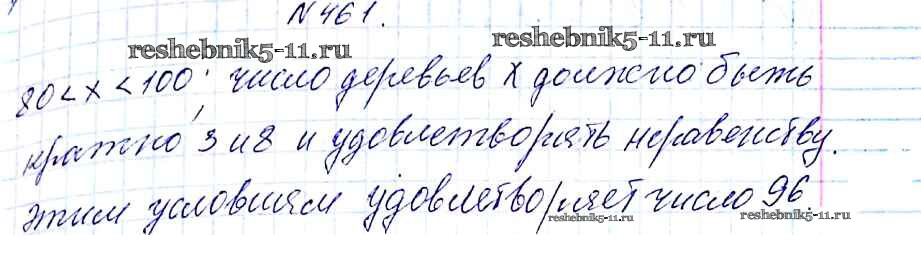 N 461.
reshebnik5-11.ru reshebnik5-11.ru
80 < x < 100, число деревьев x должно быть
кратно 3 и 8 и удовлетворять неравенству.
Этим условиям удовлетворяет число 96.
reshebnik5-11.ru reshebnik5-11.ru